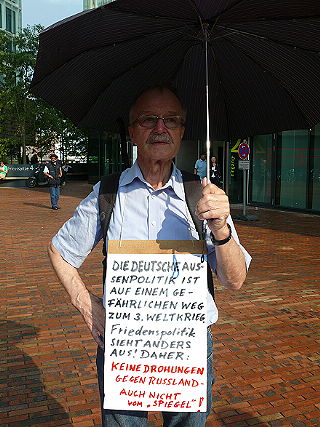 DIE DEUTSCHE AUS-
SENPOLITIK IST
AUF EINEM GE-
FÄHRLICHEN WEG
ZUM 3. WELTKRIEG
Friedenspolitik
SIEHT ANDERS
AUS! DAHER:
KEINE DROHUNGEN
GEGEN RUSSLAND-
AUCH NICHT
VOM „SPIEGEL"!